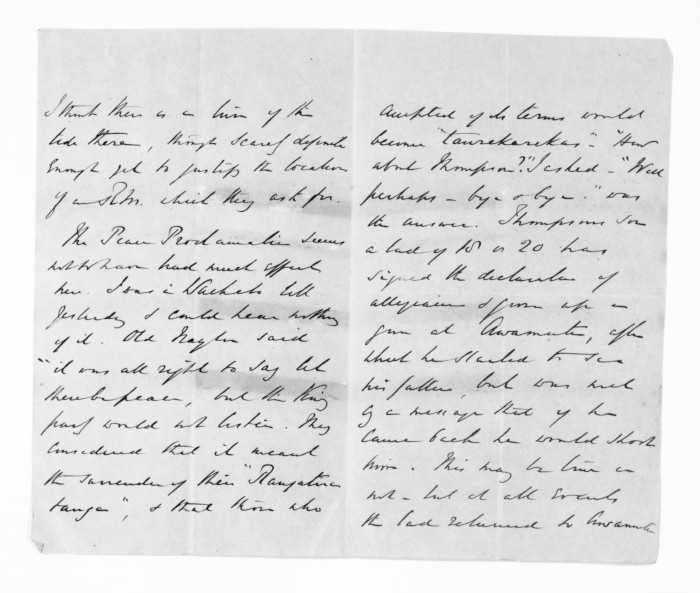 I think there is a turn of the
tide there, though scarcely definite
enough yet to justify the location
of a R.M. which they ask for.
The Peace Proclamation seems
not to have had much effect
here. I was in Waikato till
yesterday & could hear nothing
of it. Old Naylor said
"it was all right to say let
there be peace, but the King
party would not listen. They
considered that it meant
the surrender of their "Rangatira
tanga", & that those who
accepted of its terms would
become "taurekarekas". "How
about Thompson?" I asked - "Well
perhaps - bye & bye." was
the answer. Thompsons son
a lad of 18 or 20 has
signed the declaration of
allegiance & given up a
gun at Awamutu, after
which he started to see
his father, but was met
by a message that if he
came back he would shoot
him. This may be true or
not - but at all events
the lad returned to Awamutu